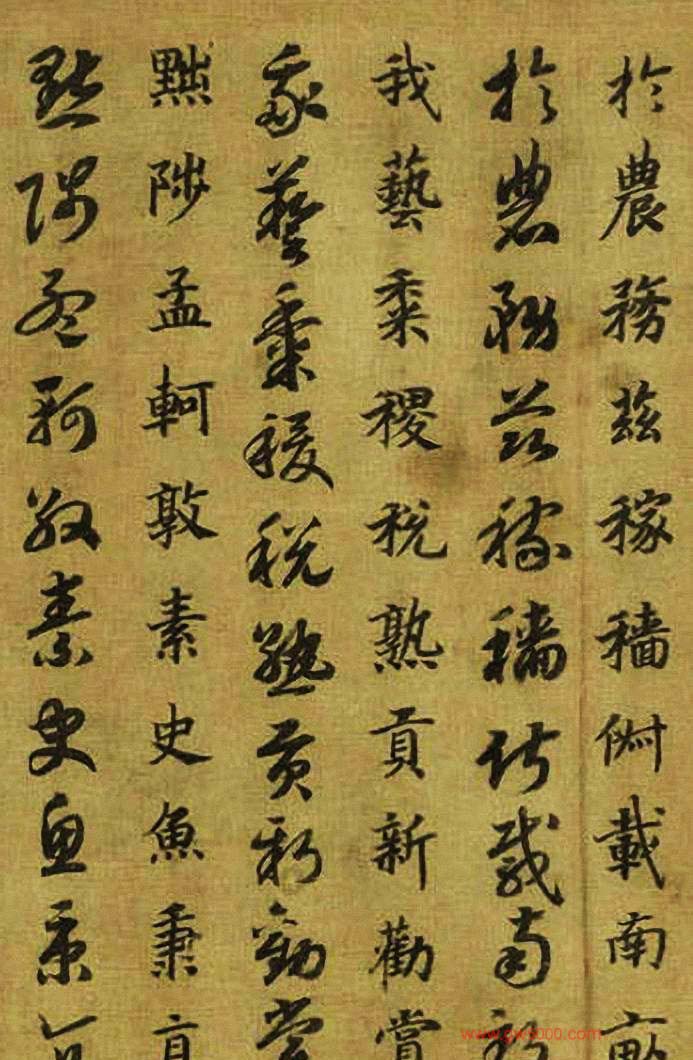 於農務茲稼穡俶載南畝
於農務茲稼穡俶載南畝
我藝黍稷稅熟貢新勸賞
我藝黍稷稅熟貢新勸賞
黜陟孟軻敦素史魚秉直
黜陟孟軻敦素史魚秉直
www.gw1000.com